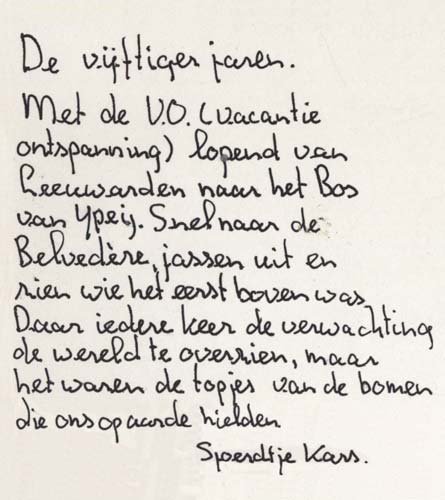 De vijftiger jaren.
Met de V.O. (vacantie
ontspanning) lopend van
Leeuwarden naar het Bos
van Ypeij. Snel naar de
Belvedère, jassen uit en
zien wie het eerst boven was
Daar iedere keer de verwachting
de wereld te overzien, maar
het waren de topjes van de bomen
die ons op aarde hielden
Sjoerdtje Kars.